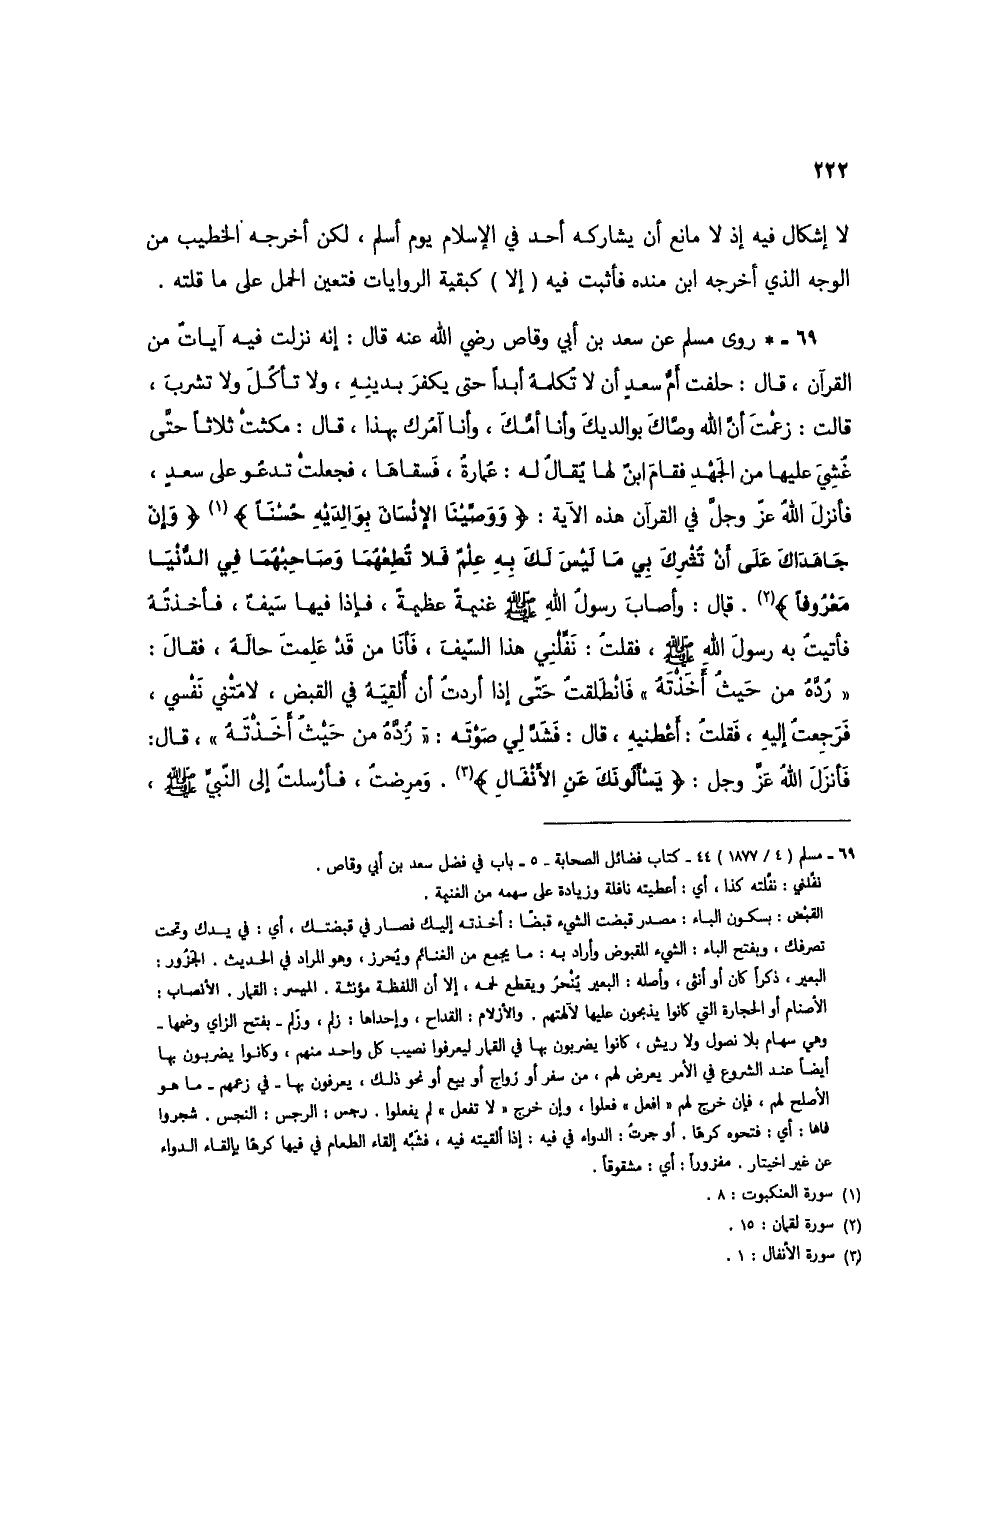 ٢٢٢
لا إشكال فيه إذ لا مانع أن يشاركه أحد في الإسلام يوم أسلم ، لكن أخرجه الخطيب من
الوجه الذي أخرجه ابن منده فأثبت فيه ( إلا ) كبقية الروايات فتعين الحمل على ما قلته .
٦٩ - * روى مسلم عن سعد بن أبي وقاص رضي الله عنه قال : إنه نزلت فيه آياتٌ من
القرآن ، قال : حلفت أُمُّ سعدٍ أن لا تُكلمهُ أبداً حتى يكفرَ بدينِهِ ، ولا تأكُلَ ولا تشربَ ،
قالت : زعمْتَ أنَّ الله وصَّاكَ بوالديكَ وأنا أمُّكَ ، وأنا آمُرك بهذا ، قال : مكثتْ ثلاثاً حتَّى
غُشِيَ عليها من الجَهْدِ فقامَ ابنٌ لها يُقالُ له : عُمارةُ ، فَسقاهَا ، فجعلتْ تدعُو على سعدٍ ،
فأنزلَ اللهُ عزّ وجلَّ في القرآن هذه الآية : ﴿ وَوَصَّيْنَا الإنْسَانَ بِوَالِدَيْهِ حُسْنَاً ﴾ (١) ﴿ وَإنْ
جَاهَدَاكَ عَلَى أنْ تُشْرِكَ بِي مَا لَيْسَ لَكَ بِهِ عِلْمٌ فَلا تُطِعْهُمَا وَصَاحِبْهُمَا فِي الدُّنْيَا
مَعْرُوفاً ﴾(٢) . قال : وأصابَ رسولُ اللهِ ﷺ غنيمةً عظيمةً ، فإذا فيها سَيفٌ ، فأخذتُهُ
فأتيتُ به رسولَ اللهِ ﷺ ، فقلتُ : نَفِّلْنِي هذا السّيفَ ، فَأنَا من قَدْ عَلِمتَ حالَهُ ، فقالَ :
« رُدَّهُ من حَيثُ أَخَذْتَهُ » فَانْطَلقتُ حَتّى إذا أردتُ أن أُلقِيَهُ في القبض ، لامَتْني نَفْسي ،
فَرَجعتُ إليهِ ، فَقلتُ : أَعْطنيهِ ، قال : فَشَدَّ لِي صَوْتَه : « رُدَّهُ من حَيْثُ أَخَذْتَهُ » ، قال:
فَأنزَلَ اللهُ عَزَّ وجل : ﴿ يَسْألُونَكَ عَنِ الأَنْفَالِ ﴾(٣) . وَمرِضتُ ، فأرْسلتُ إلى النّبيِّ ﷺ ،
٦٩ - مسلم ( ٤ / ١٨٧٧ ) ٤٤ - كتاب فضائل الصحابة - ٥ - باب في فضل سعد بن أبي وقاص .
نفِّلني : نفّلته كذا ، أي : أعطيته نافلة وزيادة على سهمه من الغنية .
القبْض : بسكون الباء : مصدر قبضت الشيء قبضًا : أخذته إليك فصار في قبضتك ، أي : في يدك وتحت
تصرفك ، وبفتح الباء : الشيء المقبوض وأراد به : ما يجمع من الغنائم ويُحرز ، وهو المراد في الحديث . الجَزُور :
البعير ، ذكراً كان أو أنثى ، وأصله : البعير يُنْحرُ ويقطع لحمه ، إلا أن اللفظة مؤنثة . الميسر : القمار . الأنصاب :
الأصنام أو الحجارة التي كانوا يذبحون عليها لآلهتهم . والأزلام : القداح ، وإحداها : زلم ، وزَلم - بفتح الزاي وضمها -
وهي سهام بلا نصول ولا ريش ، كانوا يضربون بها في القمار ليعرفوا نصيب كل واحد منهم ، وكانوا يضربون بها
أيضاً عند الشروع في الأمر يعرض لهم ، من سفر أو زواج أو بيع أو نحو ذلك ، يعرفون بها - في زعمهم - ما هو
الأصلح لهم ، فإن خرج لهم « افعل » فعلوا ، وإن خرج « لا تفعل » لم يفعلوا . رجس : الرجس : النجس . شجروا
فاها : أي : فتحوه كرهًا . أوجرتُ : الدواء في فيه : إذا ألقيته فيه ، فشبّه إلقاء الطعام في فيها كرهًا بإلقاء الدواء
عن غير اختيار . مفزوراً : أي : مشقوقاً .
(١) سورة العنكبوت : ٨ .
(٢) سورة لقمان : ١٥ .
(٣) سورة الأنفال : ١ .